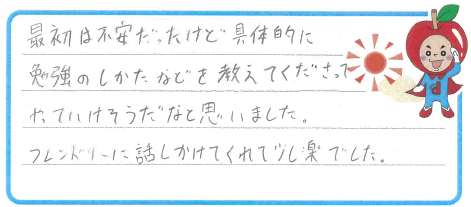 最初は不安だったけど具体的に
勉強のしかたなどを教えてくださって
やっていけそうだなと思いました。
フレンドリーに話しかけてくれて少し楽でした。
d